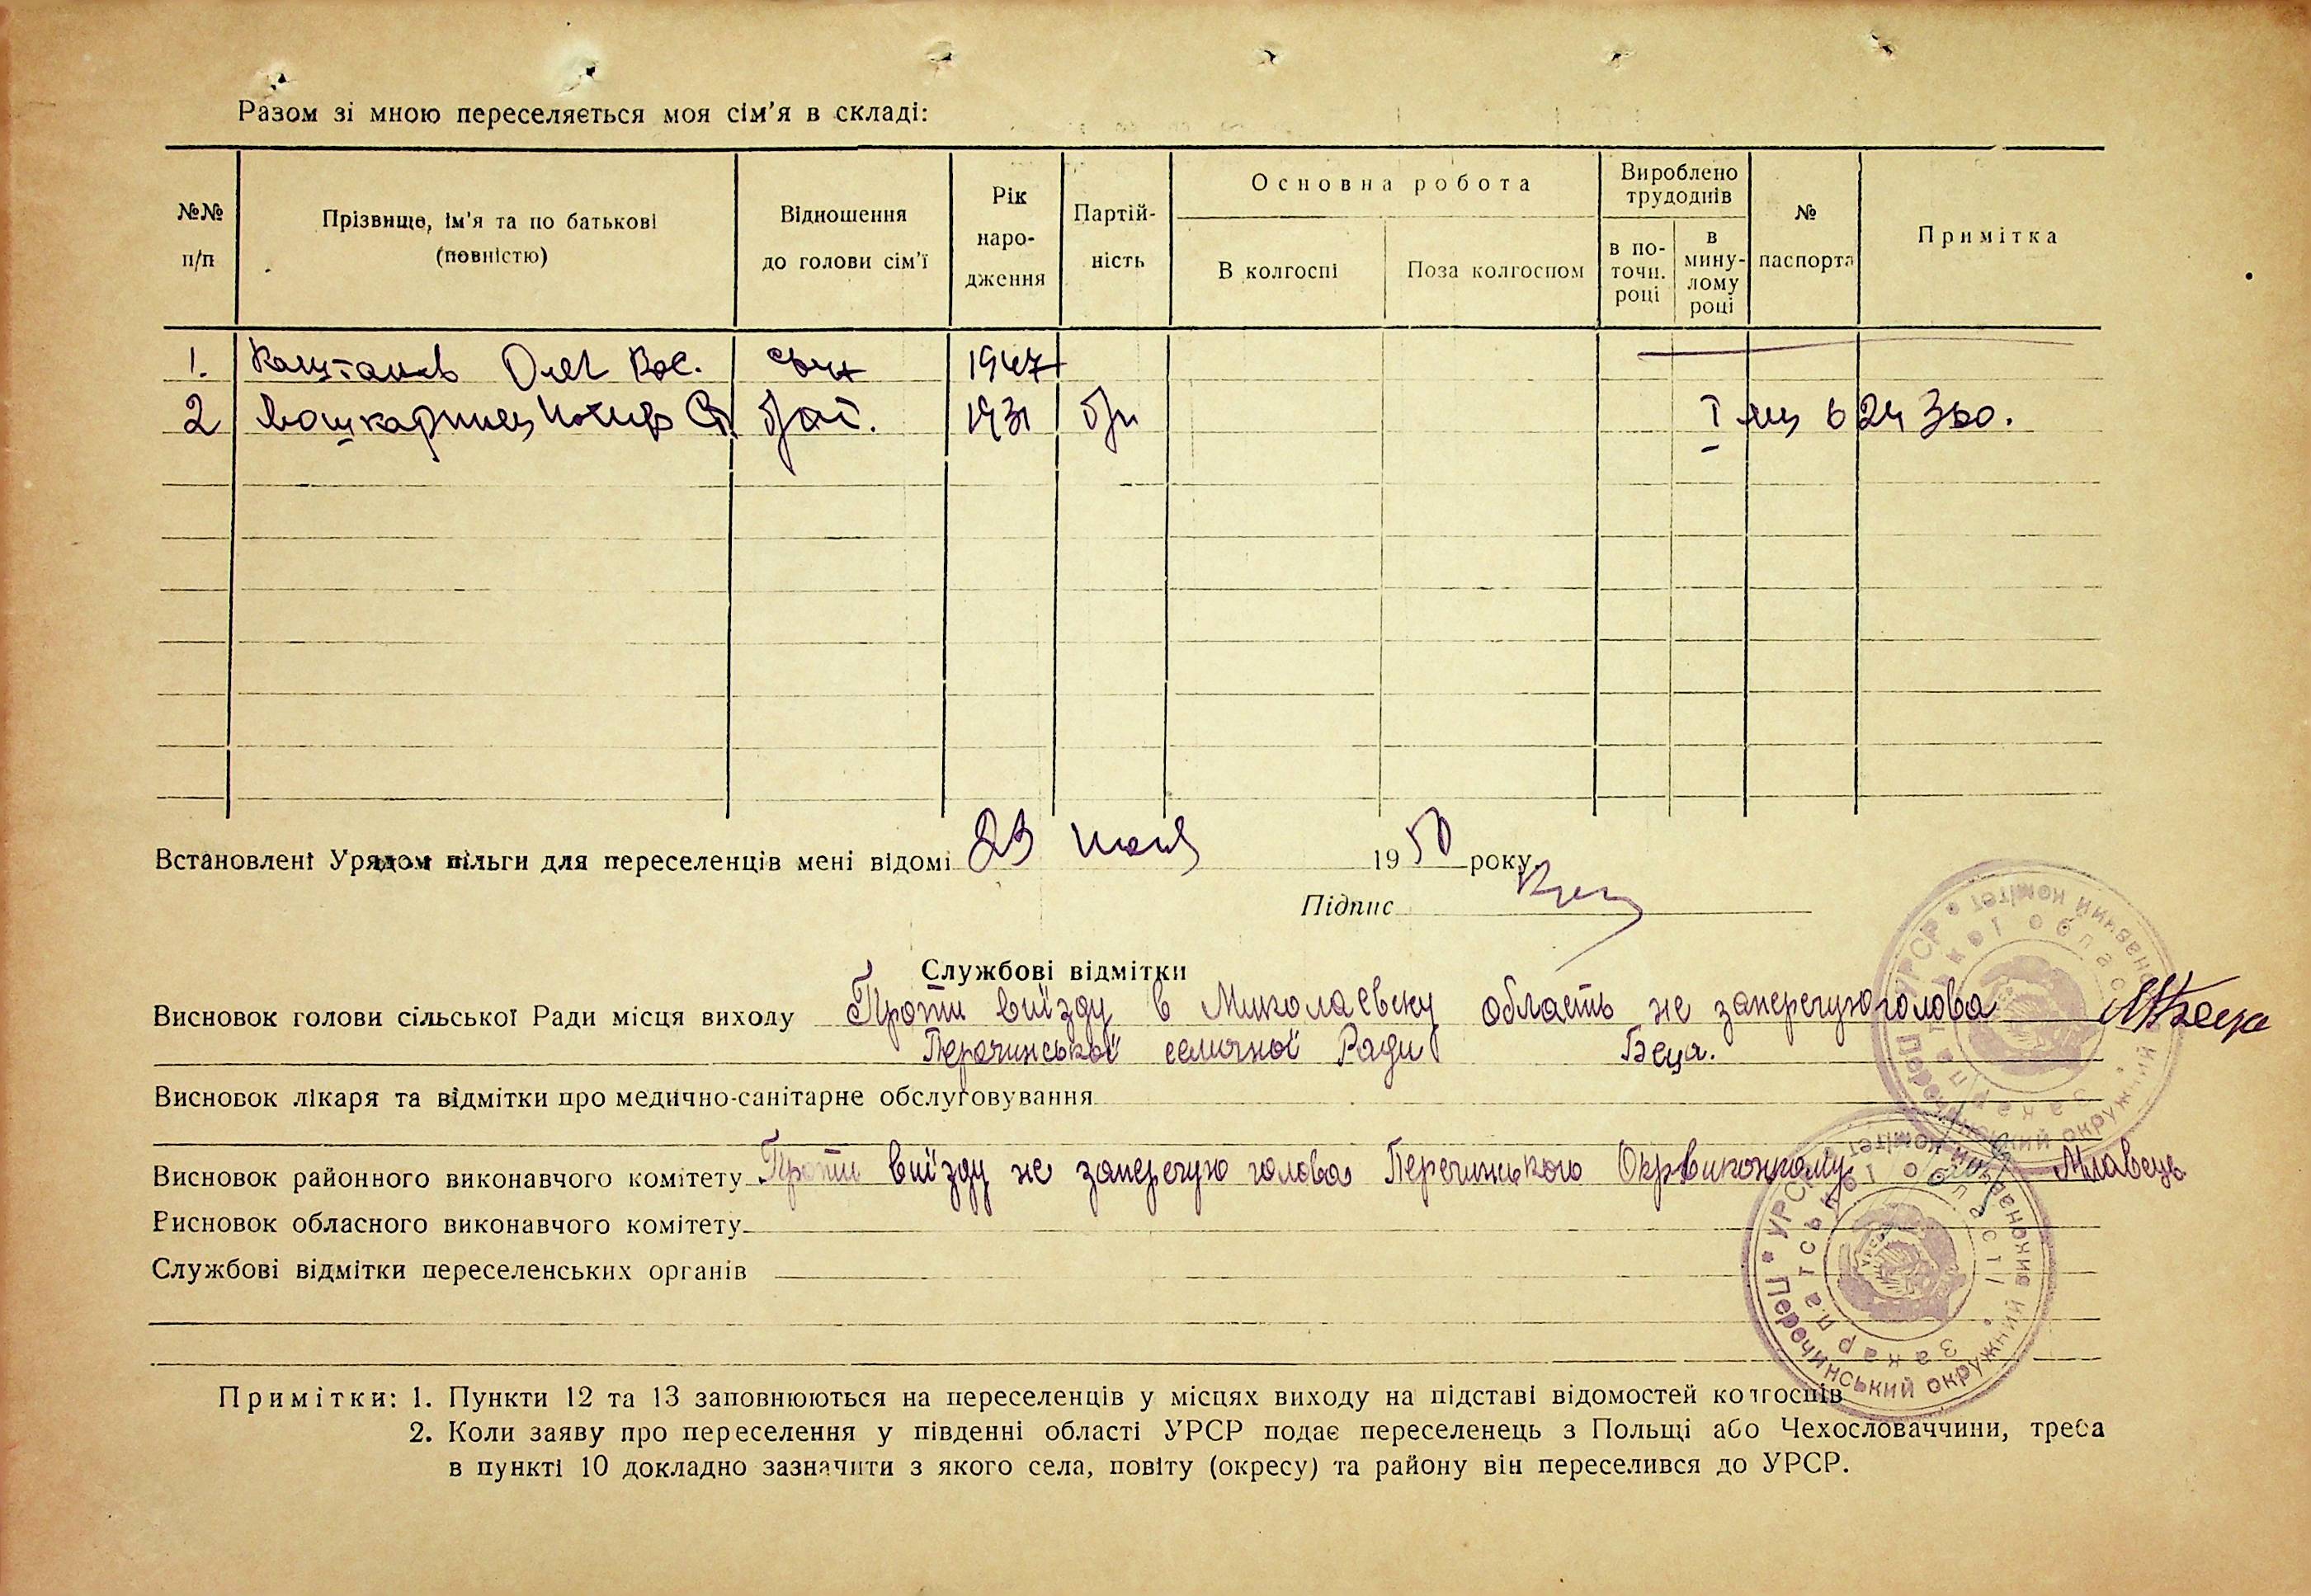 Разом зі мною переселяється моя сім'я в складі:
№№ п/п
Прізвище, ім'я та по батькові (повністю)
Відношення до голови сім'ї
Рік наро-дження
Партій-ність
Основна робота
В колгоспі
Поза колгоспом
Вироблено трудоднів
в по-точн. році
в мину-лому році
№ паспорта
Примітка
1. Каштанов Олег Вас. сын 1947
2 1931 б/п 624360.
Встановлені Урядом пільги для переселенців мені відомі 23 июня 1950 року
Підпис
Службові відмітки
Висновок голови сільської Ради місця виходу Проти виїзду в Миколаєвску область не заперечую голова
Перечинської селищної Ради Беца.
Висновок лікаря та відмітки про медично-санітарне обслуговування
Висновок районного виконавчого комітету Проти виїзду не заперечую голова Перечинського Окрвиконкому Млавець
Висновок обласного виконавчого комітету
Службові відмітки переселенських органів
УРСР • Перечинський окружний виконавчий комітет •
Закарпатської області
УРСР • Перечинський окружний виконавчий комітет •
Закарпатської області
Примітки: 1. Пункти 12 та 13 заповнюються на переселенців у місцях виходу на підставі відомостей колгоспів
2. Коли заяву про переселення у південні області УРСР подає переселенець з Польщі або Чехословаччини, треба
в пункті 10 докладно зазначити з якого села, повіту (окресу) та району він переселився до УРСР.